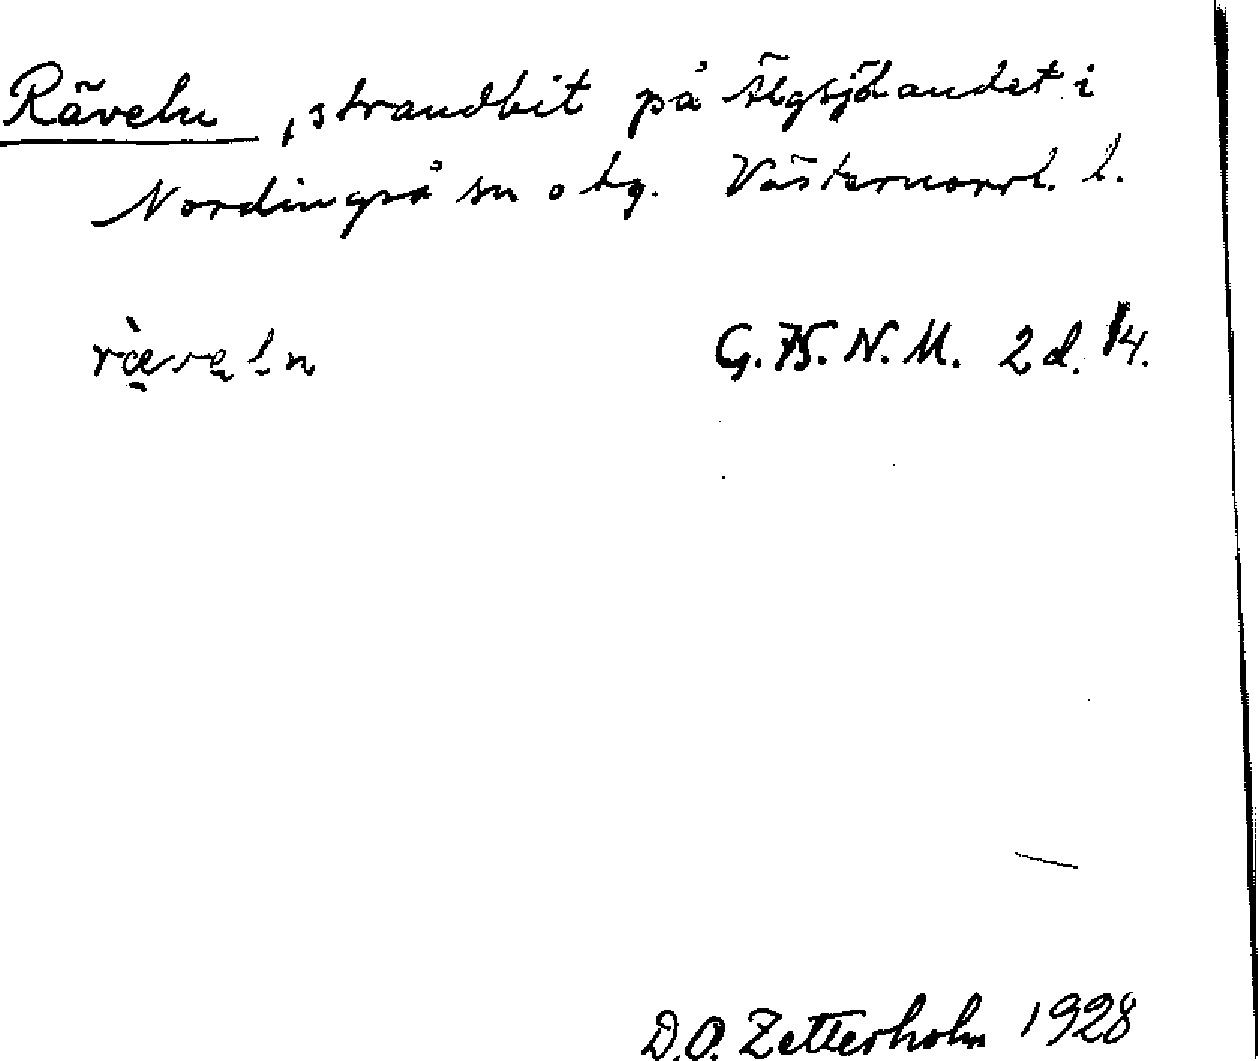 Räveln, strandbit på Älgsjölandet i
Nordingrå sn o hg. Västernorrl. l.
G. K. N. M. 2 d. 14.
D.O. Zetterholm 1928